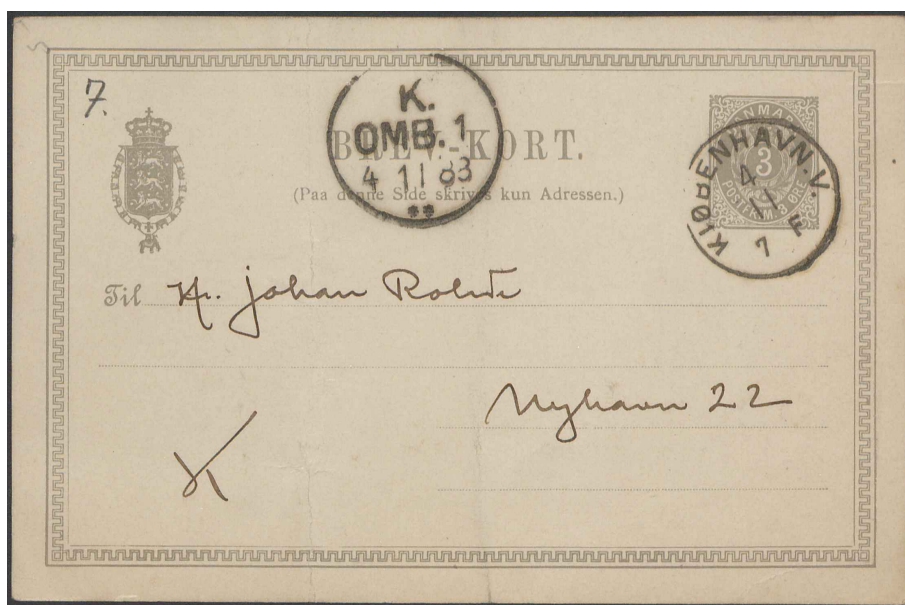 7.
K.
OMB. 1
4 11 83
BREV-KORT.
(Paa denne Side skrives kun Adressen.)
DANMARK
3
POSTFRM. 3 ØRE
KIØBENHAVN. V.
4
11
7 F
Til Hr. Johan Rohde
Nyhavn 22
K